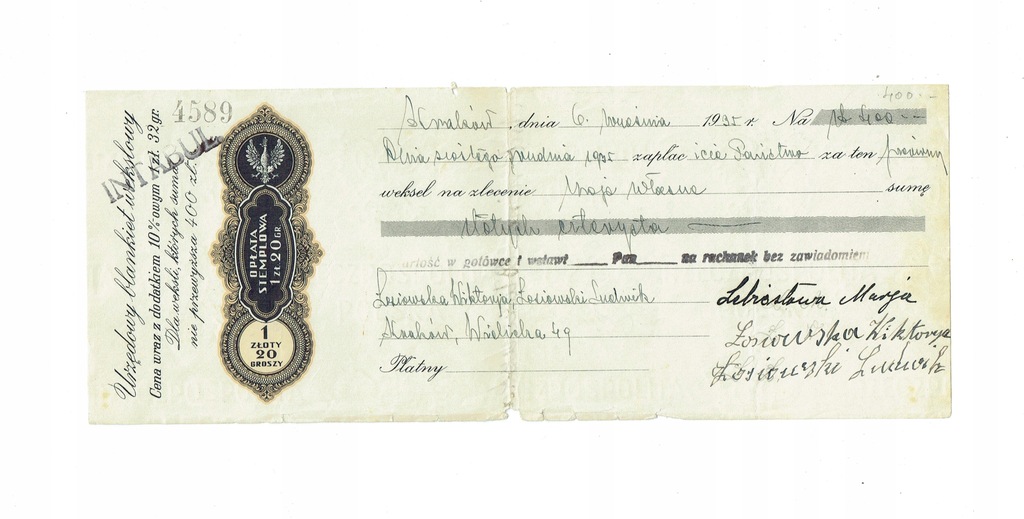 Urzędowy blankiet wekslowy
Cena wraz z dodatkiem 10%owym 1 zł. 32 gr.
Dla weksli, których suma
nie przewyższa 400 zł.
4589
OPŁATA
STEMPLOWA
1 ZŁ 20 GR
1
ZŁOTY
20
GROSZY
400.-
Kraków, dnia 6. września 1935 r. Na zł 400.-
Dnia szóstego grudnia 1935 zapłacicie Państwo za ten prosimy
weksel na zlecenie moje własne sumę
złotych czterysta
wartość w gotówce i wstawi Pan na rachunek bez zawiadomieni
Łosiowska Wiktorja, Łosiowski Ludwik
Kraków, Wielicka 49
Płatny
Marja
Łosiowska Wiktorya
Łosiowski Ludwik